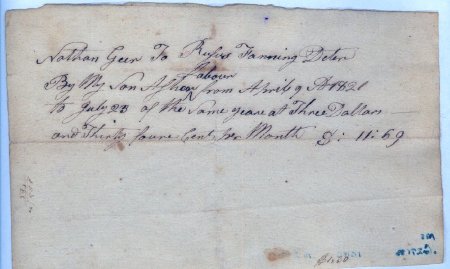 Nathan Geer To Rufus Fanning Deter
labour
By My Son Asher from April 9 At 1821
to July 23 of the Same yeare at Three Dollars
and Thirty foure Cent per Month $: 11:69